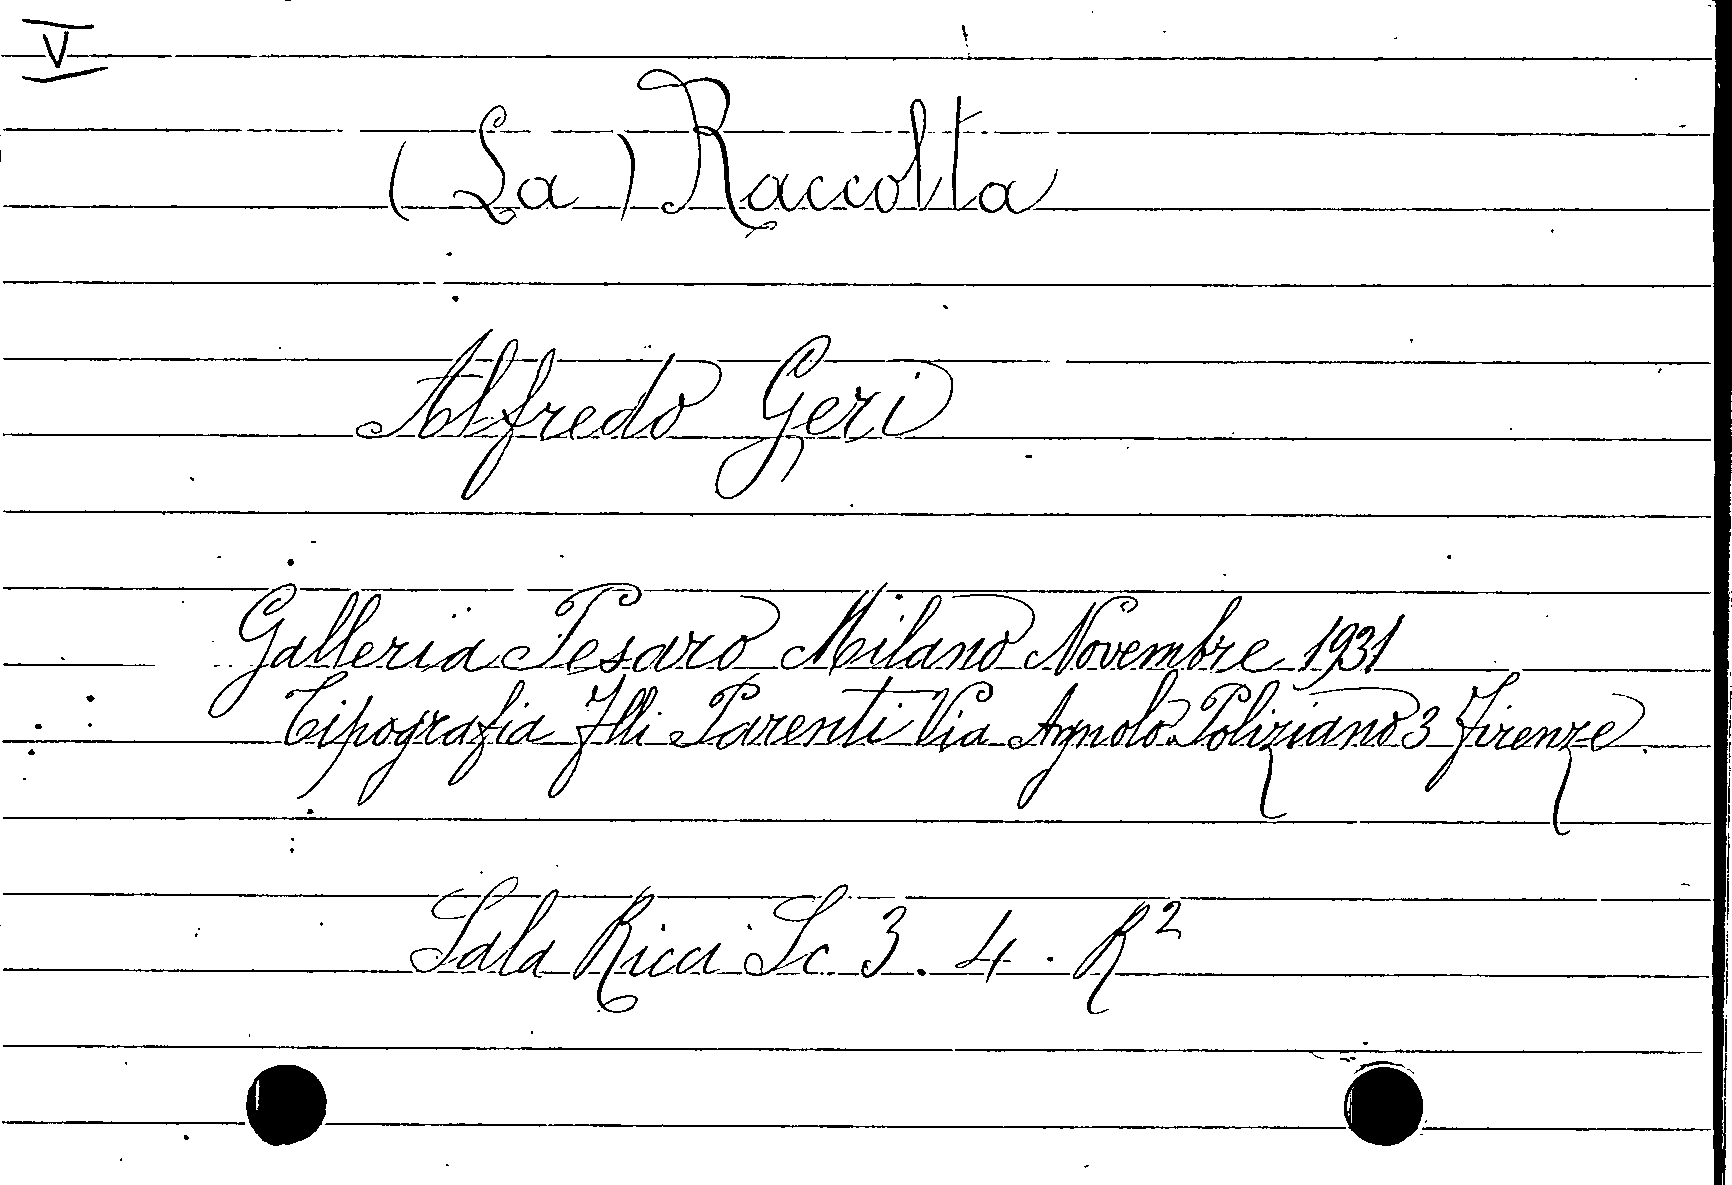 V
(La) Raccolta
Alfredo Geri
Galleria Pesaro Milano Novembre 1931
Tipografia Flli Parenti Via Agnolo Poliziano 3 Firenze
Sala Ricci Sc 3. 4. R2